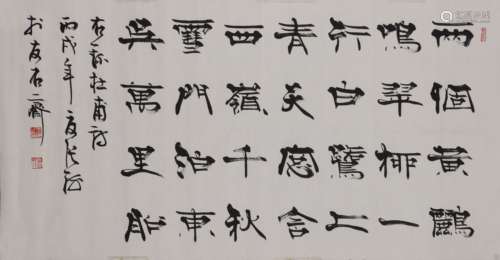 兩個黄鸝
鳴翠柳一
行白鷺上
青天窓含
西嶺千秋
雪門泊東
吳萬里船
右録杜甫詩
丙戌年夏
於友石齋